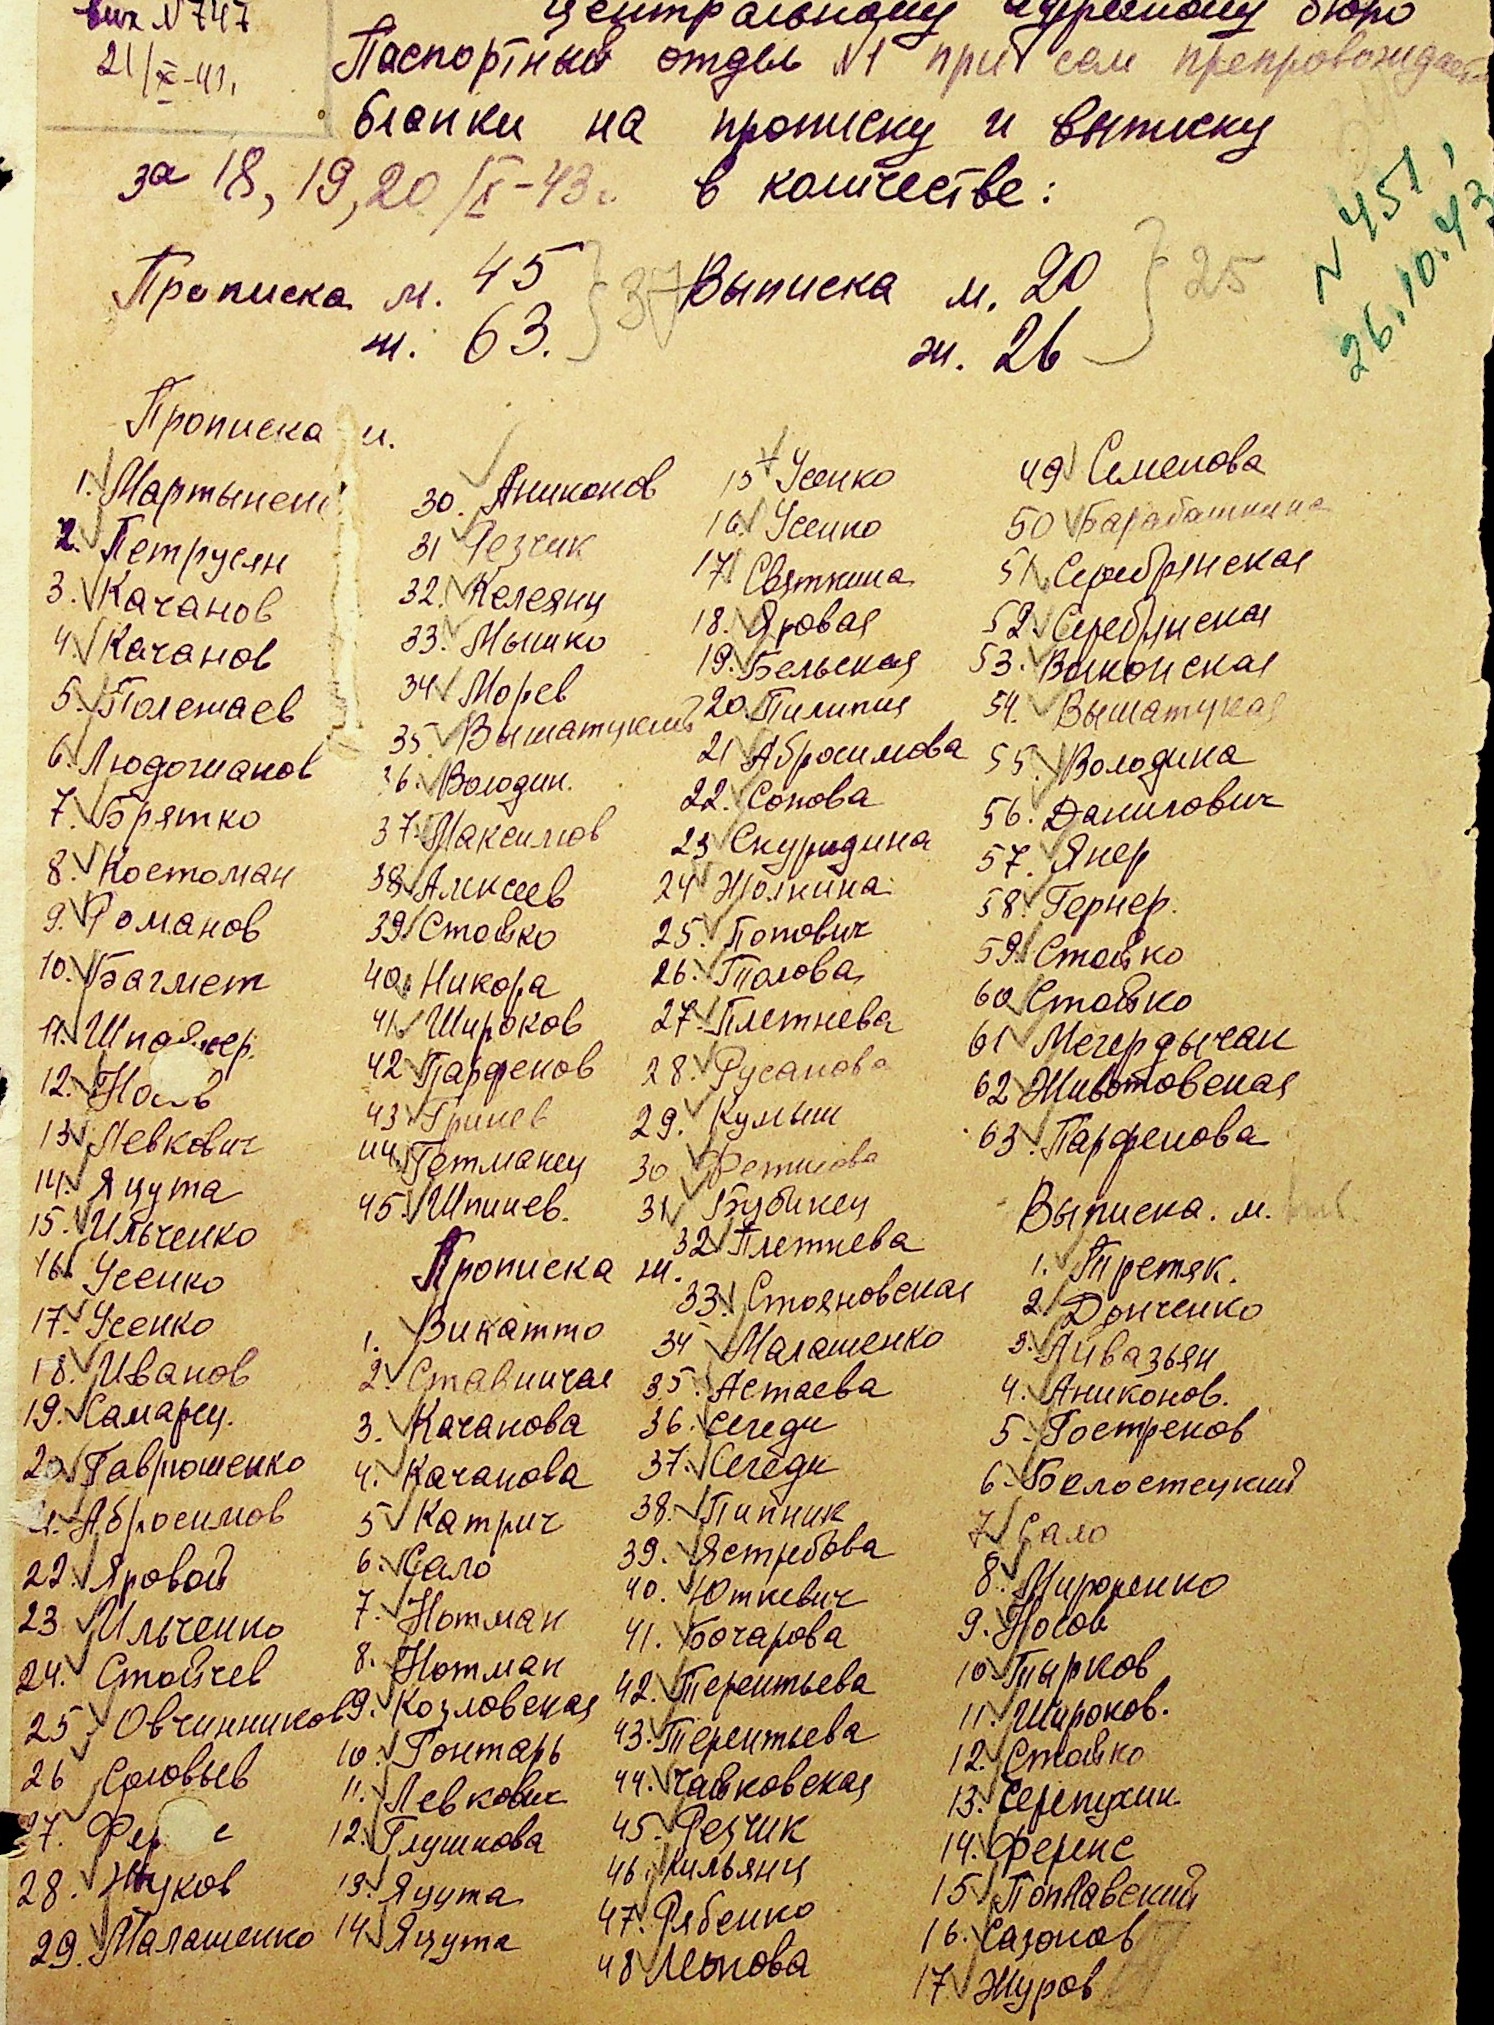 вих N 747
21/X-41.
Центральному адресному бюро
Паспортный отдел N1 при сем препровождает
бланки на прописку и выписку
за 18, 19, 20/X-43г. в количестве:
N 451,
26.10.43
Прописка м. 45 37 Выписка м. 20 25
ж. 63. ж. 26
Прописка м.
1. Мартынен
2. Петрусян
3. Качанов
4. Качанов
5. Полежаев
6. Людогжанов
7. Брятко
8. Костоман
9. Романов
10. Багмет
11. Шпа
12.
13 Левкович
14. Яцута
15. Ильченко
16. Усенко
17. Усенко
18. Иванов
19. Самарец.
20 Гаврюшенко
21. Абросимов
22. Яровой
23 Ильченко
24. Стойчев
25 Овчинников
26 Соловьев
27.
28. Жуков
29. Малашенко
30. Аниконов
31 Резчик
32. Келеянц
33. Мышко
34 Морев
35. Вышатуский
36. Володин.
37. Максимов
38 Алексеев
39 Стойко
40. Никора
41 Широков
42 Парфенов
43 Гринев
44. Гетманец
45. Шпинев.
Прописка ж.
1. Викатто
2. Ставничая
3. Качанова
4. Качанова
5 Катрич
6. Сало
7. Нотман
8. Нотман
9. Козловская
10. Гонтарь
11. Левкович
12. Глушкова
13. Яцута
14 Яцута
15 Усенко
16. Усенко
17 Святкина
18. Яровая
19. Бельская
20 Пилипия
21 Абросимова
22. Сопова
23 Скуридина
24 Жолкина
25. Попович
26. Толова
27. Плетнева
28. Русанова
29. Кумыш
30 Фетисова
31 Бубинец
32 Плетнева
33. Стояновская
34 Малашенко
35. Астаева
36. Сегеди
37. Сегеди
38. Пипник
39. Ястребова
40. Юткевич
41. Бочарова
42. Терентьева
43. Терентьева
44. Чайковская
45. Резчик
46. Кильянц
47. Рябенко
48 Леонова
49 Семенова
50 Барабашкина
51. Серебрянская
52. Серебрянская
53. Волконская
54. Вышатуская
55. Володина
56. Данилович
57. Янер
58. Гернер.
59. Стойко
60 Стойко
61 Мегердычан
62 Животовская
63. Парфенова
Выписка. м.
1. Третяк.
2. Донченко
3. Айвазьян
4. Аниконов.
5. Гостренов
6. Белостецкий
7 Сало
8. Мироненко
9. Носов
10 Тырков
11. Широков.
12. Стойко
13. Серепухин
14. Ференс
15 Поплавский
16. Сазонов
17 Журов